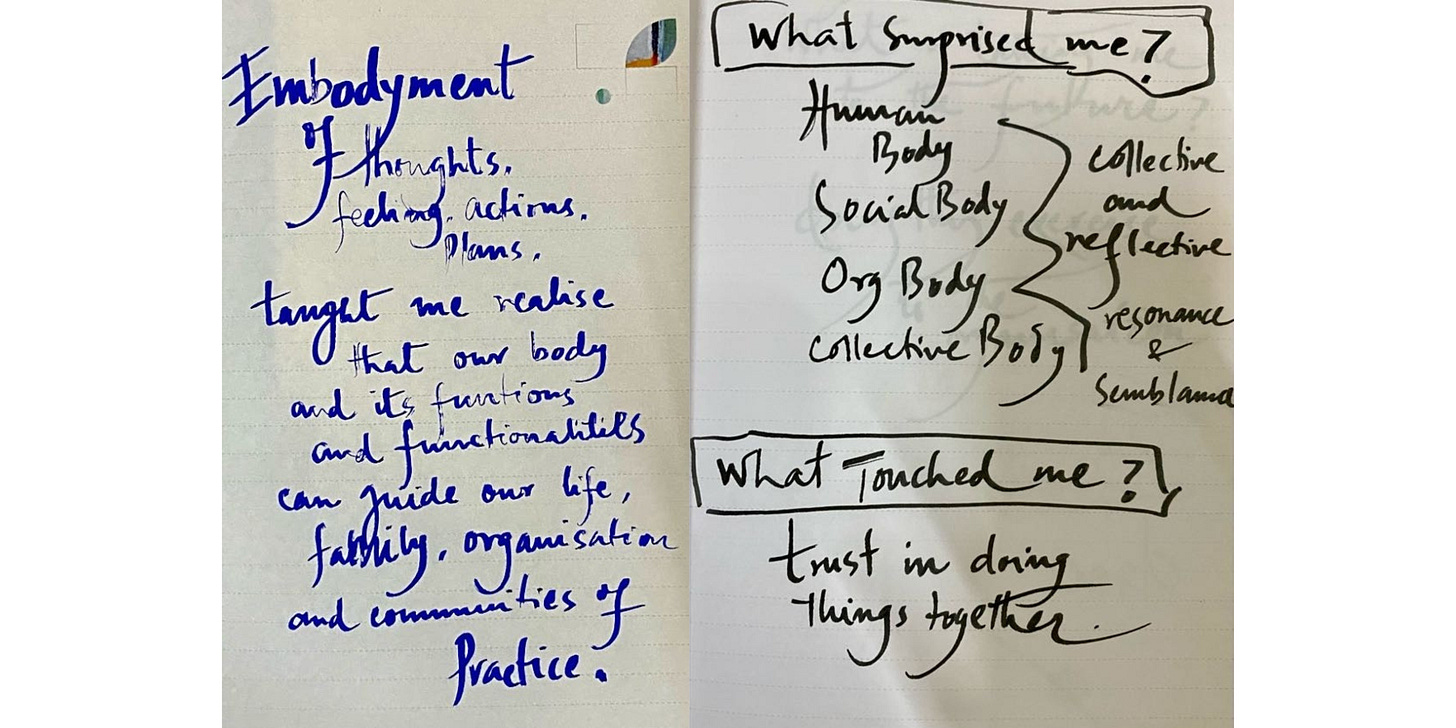 Embodyment
of thoughts,
feeling, actions,
Plans,
taught me realise
that our body
and its funtions
and functionalitiES
can guide our life,
family, organisation
and communities of
Practice.
What Surprised me?
Human
Body
Social Body
Org Body
Collective Body
collective
and
reflective
resonance
&
What Touched me?
trust in doing
Things together.